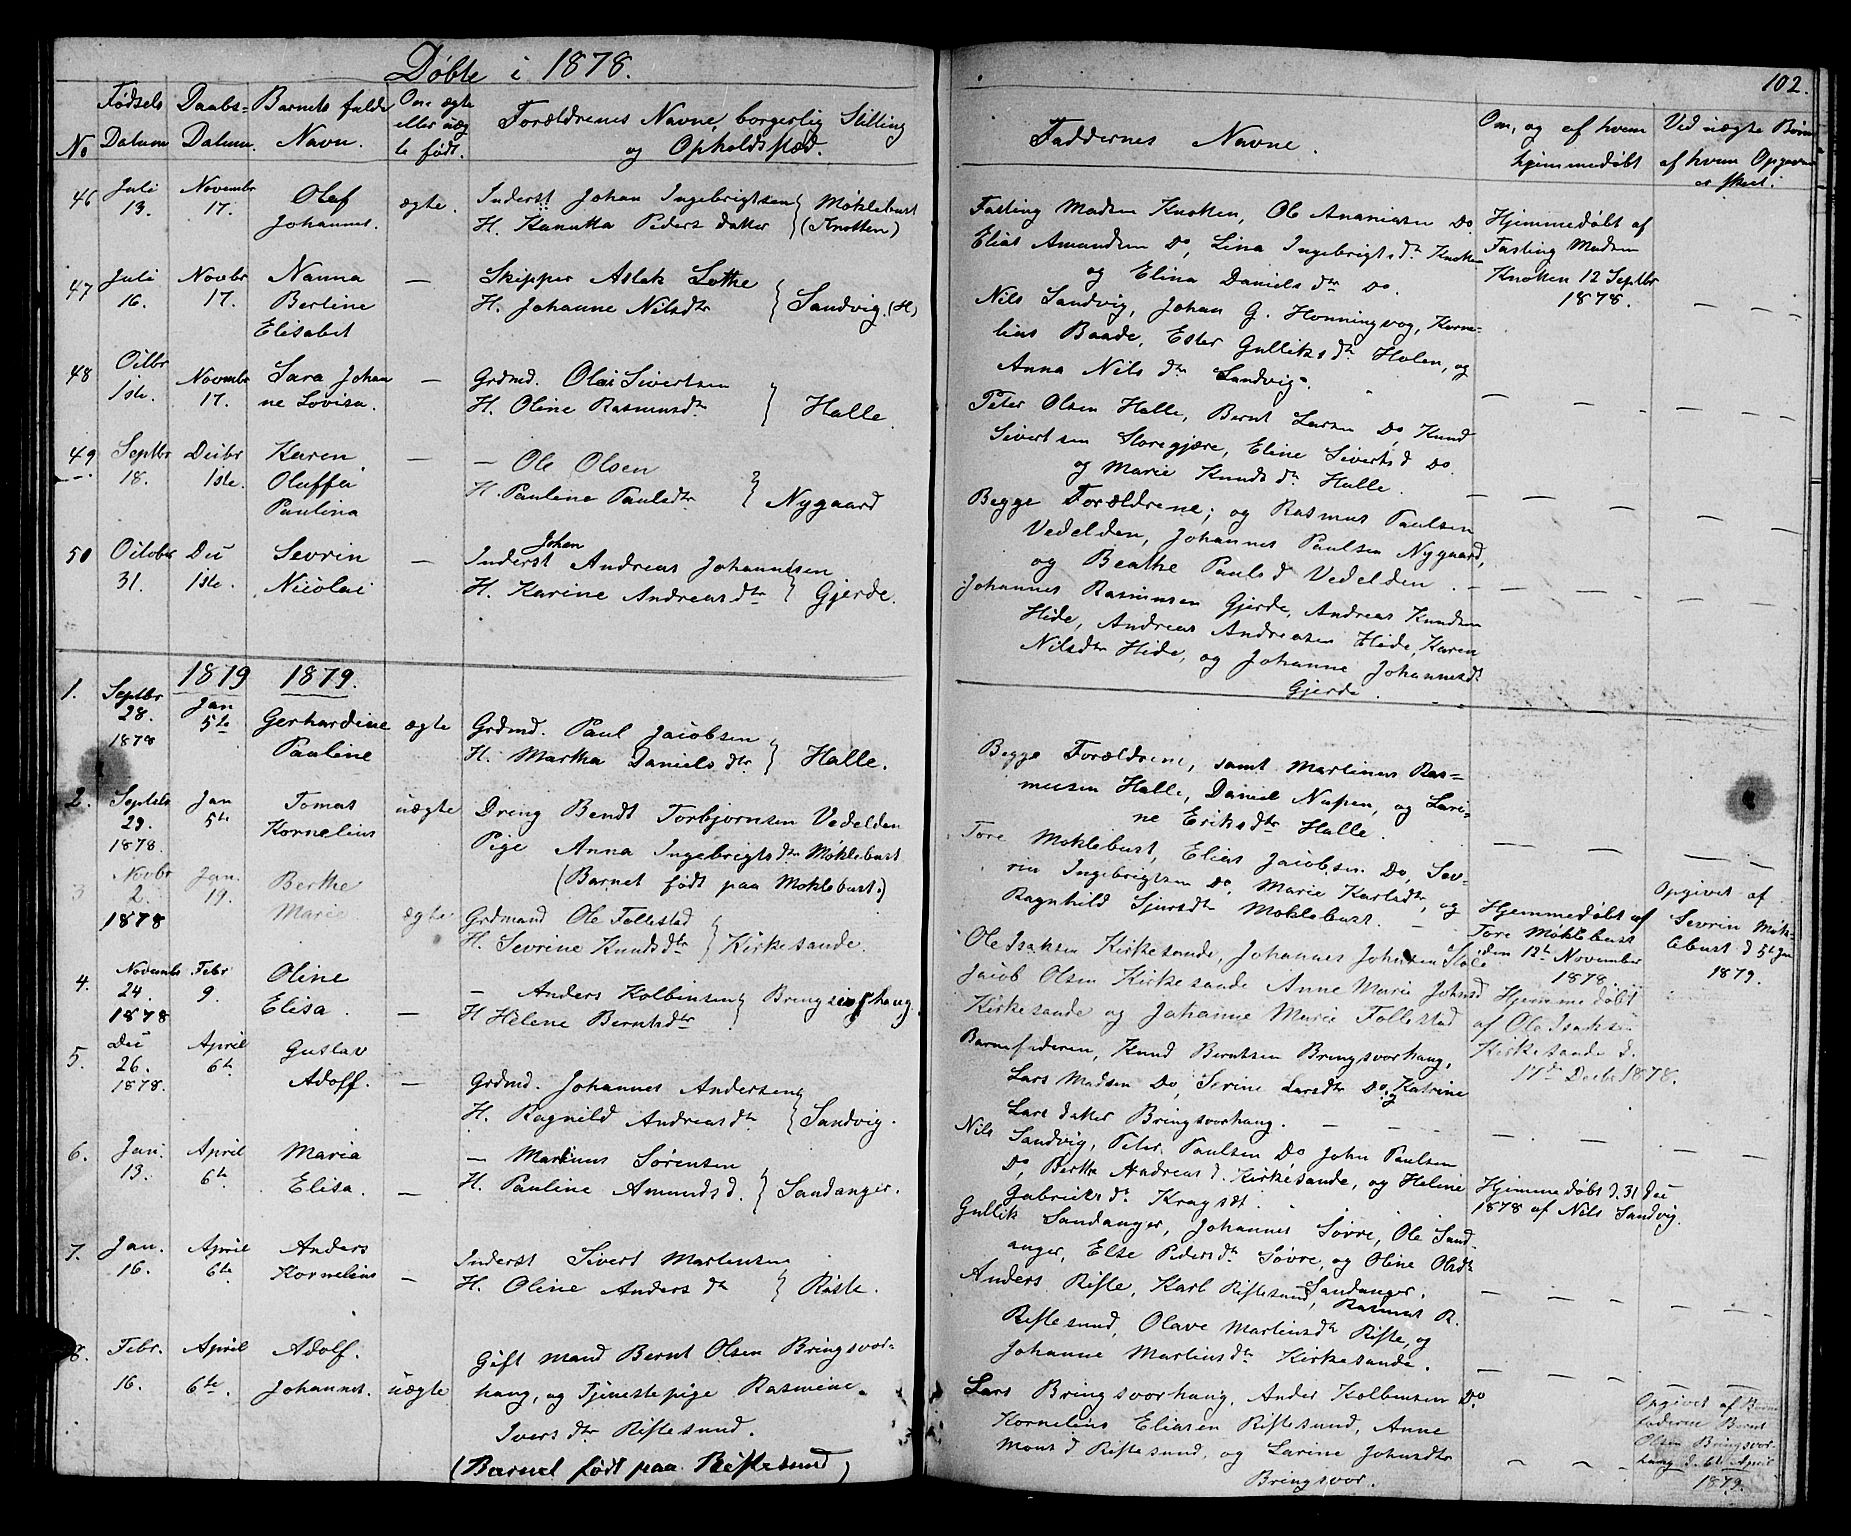 Døbte i 1878.
102.
No
Fødsels Datum
Daabs-Datum.
Barnets fulde Navn.
Om ægte eller uægte født.
Forældrenes Navne, borgerlig Stilling og Opholdssted.
Faddernes Navne.
Om, og af hvem hjemmedøbt
Ved uægte Børn af hvem Opgaven er skeet.
46 Juli 13. Novembr 17. Olaf Johannes. ægte.
Inderst Johan Ingebrigtsen
H. Hanikka Peders datter } Møklebust (Knotten)
Fasting Madsen Knotten, Ole Ananiasen Do
Elias Amundsen Do, Lina Ingebrigtsdtr Knotten
og Elina Daniels dtr Do.
Hjemmedøbt af
Fasting Madsen
Knotten 12 Septbr
1878.
47 Juli 16. Novbr 17. Nanna Berline Elisabet —
Skipper Aslak Lothe
H. Johanne Nilsdtr } Sandvig. (H)
Nils Sandvig, Johan G. Honningsvog, Korne-
lius Baade, Ester Gulliksdtr Holen, og
Anna Nils dtr Sandvig.
48 Octbr 1ste. Novembr 17. Sara Johanne Lovisa. —
Grdmd. Olai Sivertsen
H. Oline Rasmusdtr } Halle.
Peter Olsen Halle, Bernt Larsen Do, Knud
Sivertsen Storegjære, Eline Sivertsd Do.
og Marie Knudsdtr Halle.
49 Septbr 18. Decbr 1ste. Karen Oluffa Paulina —
— Ole Olsen
H. Pauline Paulsdtr } Nygaard
Begge Forældrene; og Rasmus Paulsen
Vedelden, Johannes Paulsen Nygaard,
og Beathe Pauls d Vedelden.
50 October 31. Dec 1ste. Sevrin Nicolai —
Johan
Inderst Andreas Johannesen
H. Karine Andreasdtr } Gjerde.
Johannes Rasmusen Gjerde, Andreas Knudsen
Hide, Andreas Andreasen Hide, Karen
Nilsdtr Hide, og Johanne Johannesdtr
Gjerde.
1879 1879.
1. Septbr 28. 1878 Jan 5te Gerhardine Pauline ægte
Grdmd. Paul Jacobsen
H. Martha Daniels dtr } Halle.
Begge Forældrene, samt Martinus Ras-
musen Halle, Daniel Nupen, og Lari-
ne Eriksdtr Halle.
2. Septbr 29. 1878. Jan 5te Tomas Kornelius uægte
Dreng Bendt Torbjørnsen Vedelden
Pige Anna Ingebrigts dtr Møklebust
(Barnet født paa Møklebust.)
Tore Møklebust, Elias Jacobsen Do, Sev-
rin Ingebrigtsen Do, Marie Karlsdtr, og
Ragnhild Sjursdtr Møklebust.
Hjemmedøbt af
Tore Møklebust
den 12te November
1878.
Opgivet af
Sevrin Møk-
lebust d 5te Jan
1879.
3 Novbr 2. 1878 Jan. 19. Berthe Marie ægte
Grdmand Ole Follestad
H. Sevrine Knudsdtr } Kirkesande.
Ole Isaksen Kirkesande, Johannes Johnsen
Jacob Olsen Kirkesande Anne Marie Johnsd
Kirkesande og Johanne Marie Follestad
Hjemmedøbt
af Ole Isaksen
Kirkesande d.
17de Decbr 1878.
4. Novembr 24. 1878 Febr 9. Oline Elisa. —
— Anders Kolbensen
H Helene Berntsdtr } Bringsvorhaug.
Barnefaderen, Knud Berntsen Bringsvorhaug,
Lars Madsen Do, Serine Larsdtr Do, og Katrine
Lars datter Bringsvorhaug.
5. Dec 26. 1878. April 6te. Gustav Adolf. —
Grdmd. Johannes Andersen
H. Ragnild Andreasdtr } Sandvig.
Nils Sandvig, Peter Paulsen Do John Paulsen
Do, Berthe Andreas d. Kirkesande, og Helene
Gabriels dtr Kragset.
Hjemmedøbt d. 31 Dec
1878 af Nils Sandvig.
6. Jan. 13. April 6te Maria Elisa. —
— Markus Sørensen
H. Pauline Amunds d. } Sandanger.
Gullik Sandanger, Johannes Søvre, Ole Sand-
anger, Else Pedersdtr Søvre, og Oline Olsdtr
Sandanger.
7. Jan. 16. April 6te Anders Kornelius —
Inderst Sivert Martensen
H. Oline Anders dtr } Riste.
Anders Rifte, Karl Riftesund, Rasmus R.
Riftesund, Olave Martinsdtr Rifte, og
Johanne Martinsdtr Kirkesande.
8. Febr. 16. April 6te. Adolf. Johannes. uægte
Gift mand Bernt Olsen Bringsvor-
haug, og Tjenestepige Rasmine
Ivers dtr Riftesund.
(Barnet født paa Riftesund)
Lars Bringsvorhaug, Anders Kolbensen Do.
Kornelius Eliasen Riftesund, Anne
Mons d Riftesund, og Larine Johnsdtr
Bringsvor.
Opgivet af Barne
faderen Bernt
Olsen Bringsvor-
haug d. 6te April
1879.